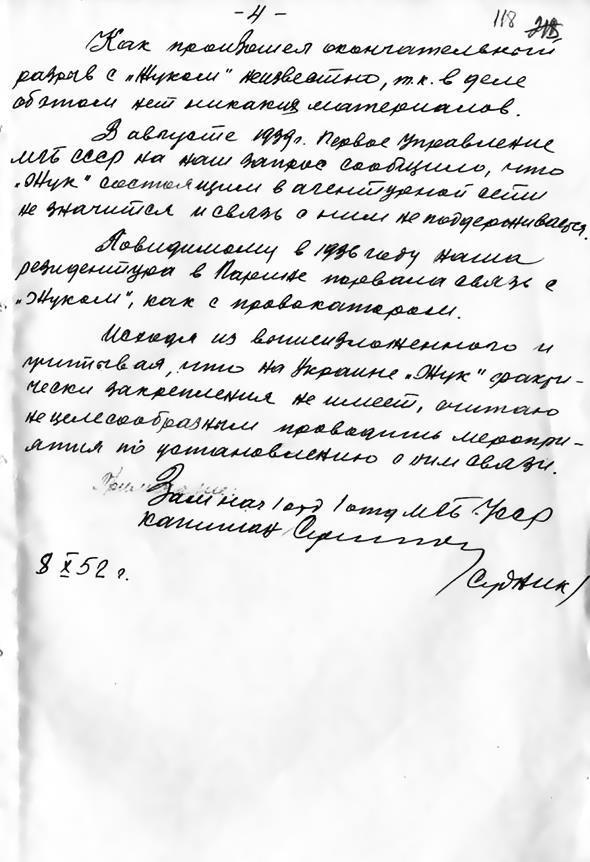 - 4 -
118
218
Как произошел окончательной
разрыв с „Жуком" неизвестно, т.к. в деле
об этом нет никаких материалов.
В августе 1939 г. Первое Управление
МГБ СССР на наш запрос сообщило, что
„Жук" состоящим в агентурной сети
не значится и связь с ним не поддерживается.
Повидимому в 1936 году наша
резидентура в Париже порвала связь с
„Жуком", как с провокатором.
Исходя из вышеизложенного и
учитывая, что на Украине „Жук" факти-
чески закрепления не имеет, считаю
нецелесообразным проводить меропри-
ятия по установлению с ним связи.
Зам нач 1 отд 1 отд МГБ УССР
капитан
/Судник/
8 X 52 г.